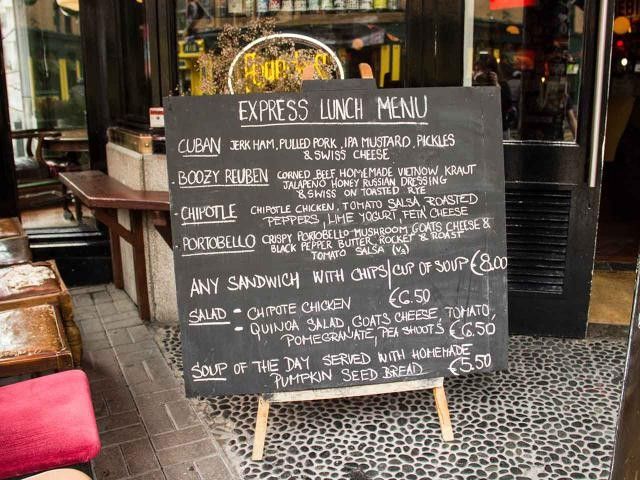 EXPRESS LUNCH MENU
CUBAN JERK HAM, PULLED PORK, IPA MUSTARD, PICKLES
& SWISS CHEESE
BOOZY REUBEN CORNED BEEF HOMEMADE VIETNOW KRAUT
JALAPENO HONEY RUSSIAN DRESSING
& SWISS ON TOASTED RYE
CHIPOTLE CHIPOTLE CHICKEN, TOMATO SALSA, ROASTED
PEPPERS, LIME YOGURT, FETA CHEESE
PORTOBELLO CRISPY PORTOBELLO MUSHROOM, GOATS CHEESE &
BLACK PEPPER BUTTER, ROCKET & ROAST
TOMATO SALSA (V)
ANY SANDWICH WITH CHIPS/CUP OF SOUP €8.00
SALAD - CHIPOTE CHICKEN €6.50
- QUINOA SALAD, GOATS CHEESE, TOMATO,
POMEGRANATE, PEA SHOOTS €6.50
SOUP OF THE DAY SERVED WITH HOMEMADE
PUMPKIN SEED BREAD €5.50